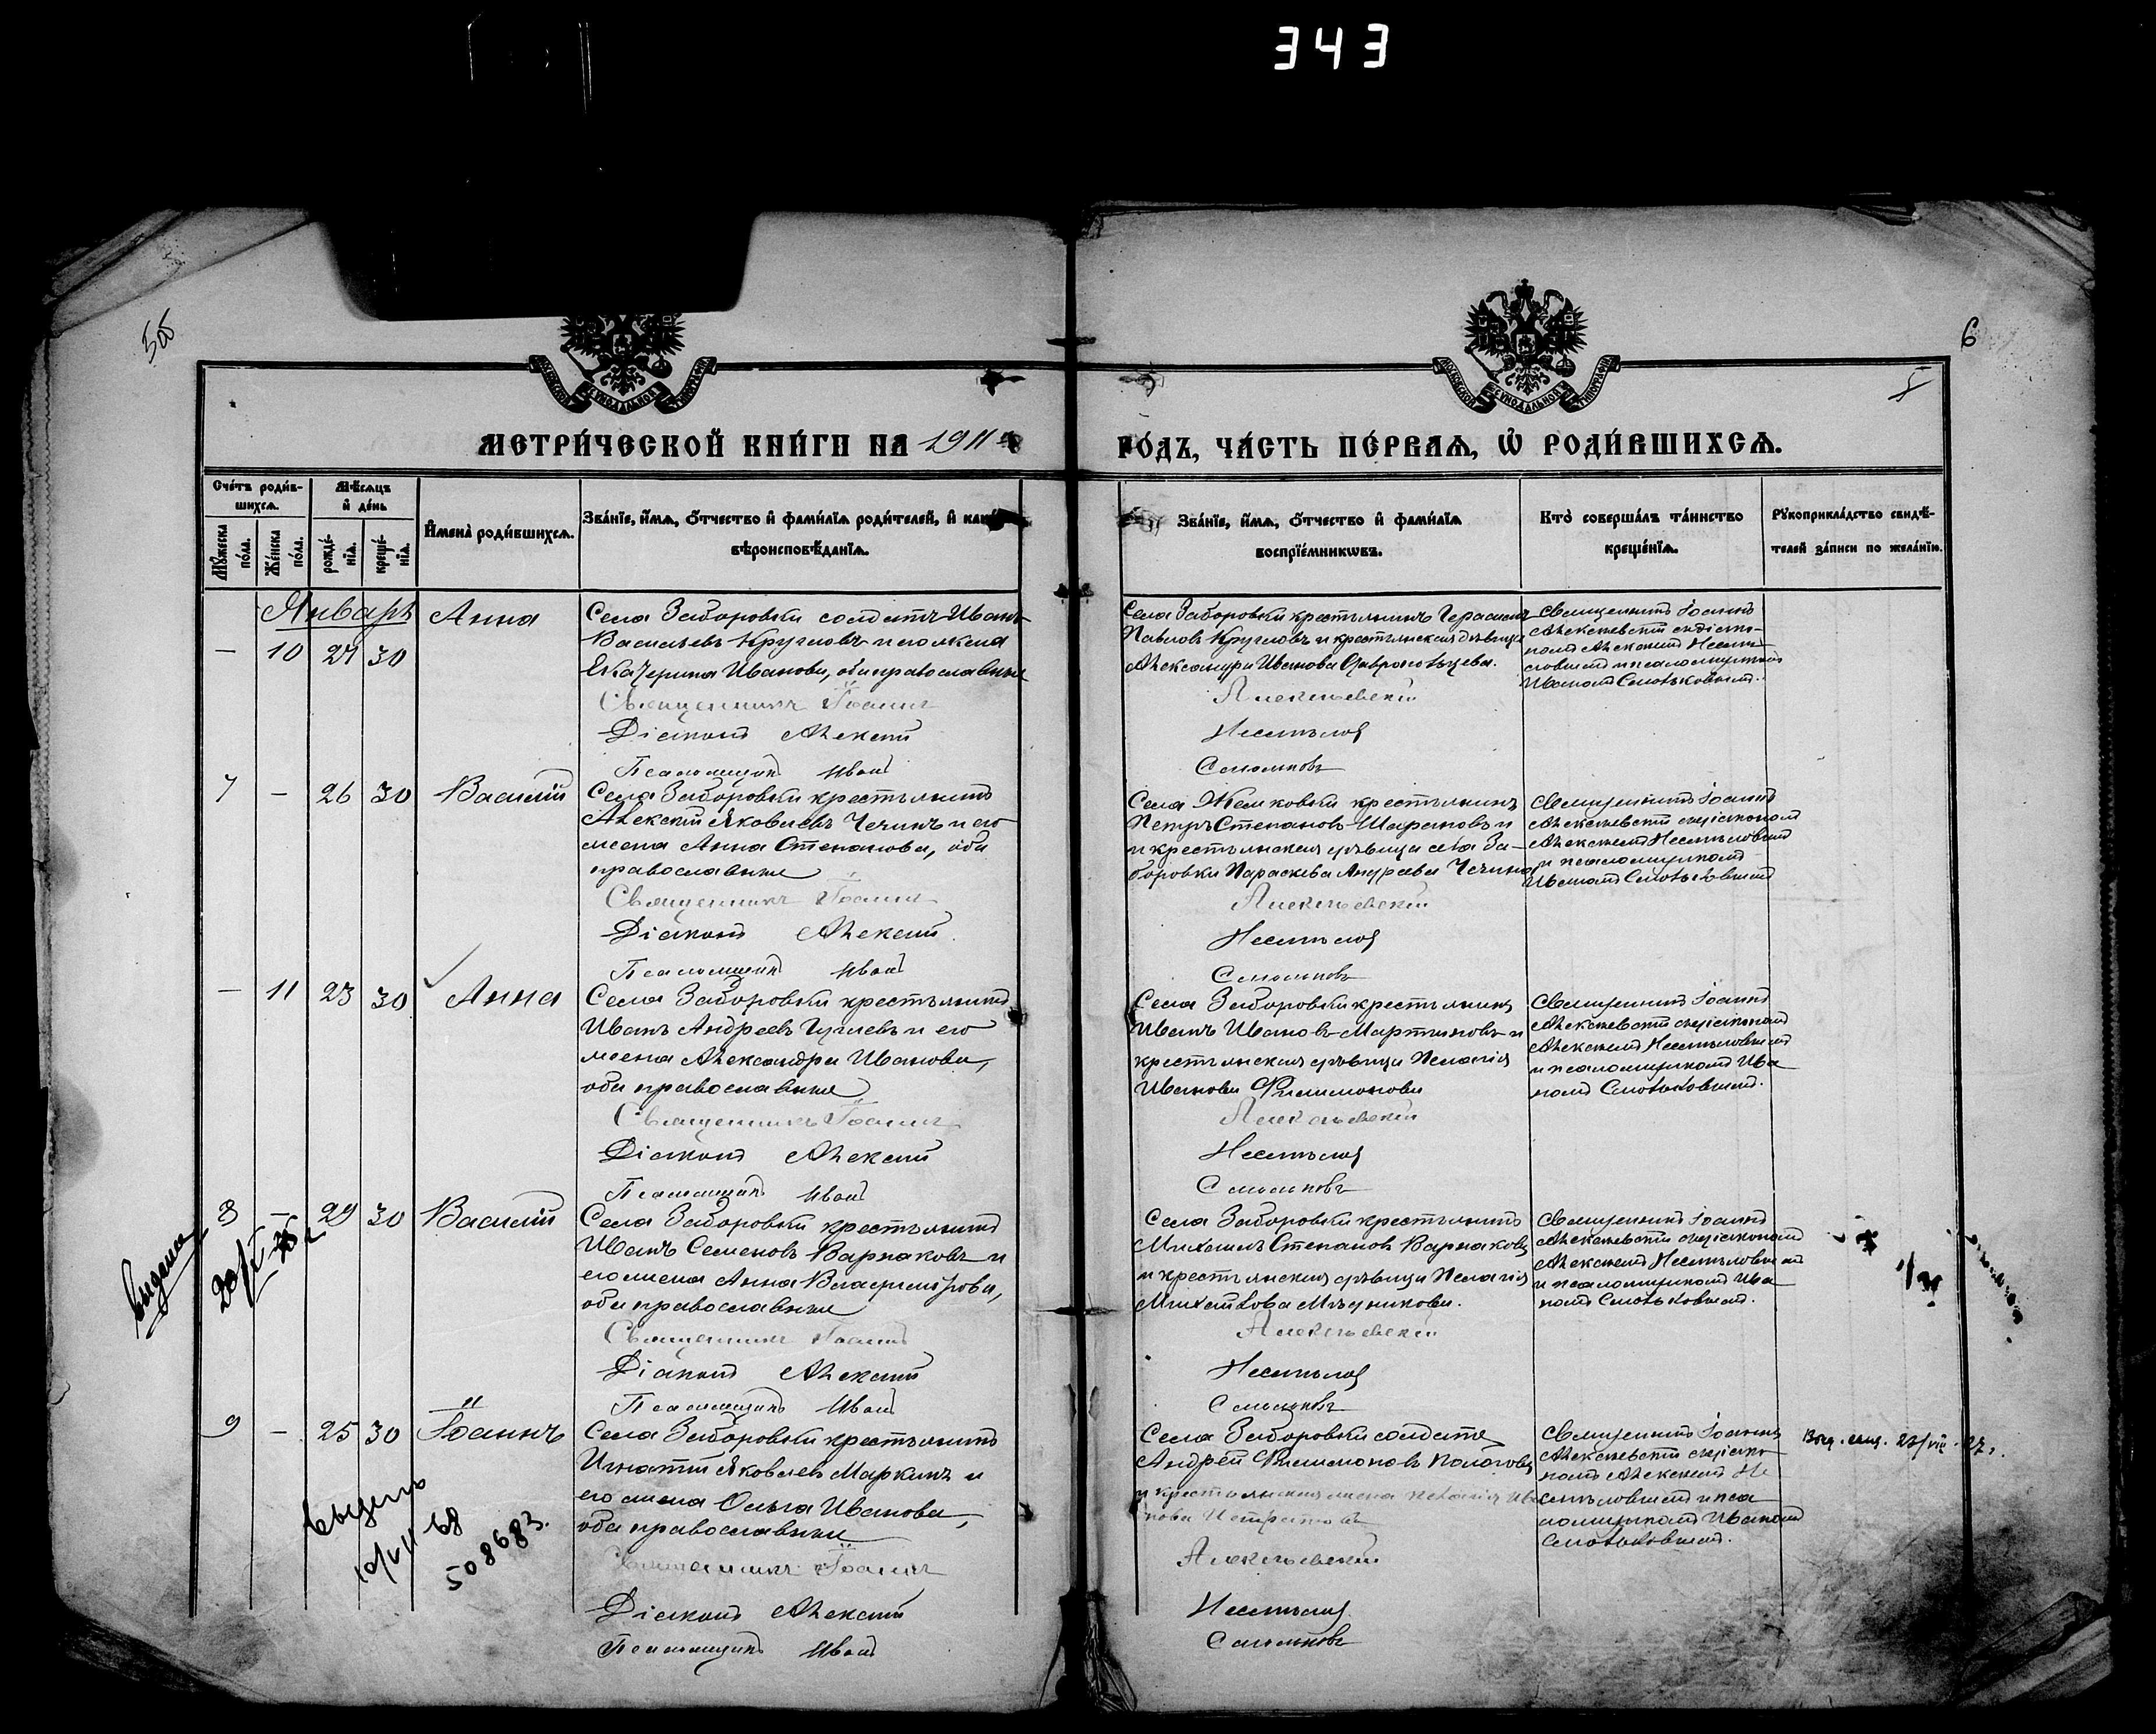 343
6
МОСКОВСКОЙ СѴНОДАЛЬНОЙ ТИПОГРАФІИ
МОСКОВСКОЙ СѴНОДАЛЬНОЙ ТИПОГРАФІИ
МЕТРИ́ЧЕСКОЙ КНИ́ГИ НА 1911
ГО́ДЪ, ЧА́СТЬ ПЕ́РВАѦ, Ѽ РОДИ́ВШИХСѦ.
Сче́тъ роди́в-
шихсѧ.
Мѣ́сѧцъ
и҆ де́нь
Мꙋ́жеска
по́ла.
Же́нска
по́ла.
рожде́-
нїѧ.
креще́-
нїѧ.
И҆мена̀ роди́вшихсѧ.
Зва́нїе, и҆́мѧ, ѻ҆́тчество и҆ фами́лїѧ роди́телей, и҆
вѣроисповѣ́данїѧ.
Зва́нїе, и҆́мѧ, ѻ҆́тчество и҆ фами́лїѧ
воспрїе́мникѡвъ.
Кто̀ соверша́лъ та́инство
креще́нїѧ.
Рꙋкоприкла́дство свидѣ́-
телей за́писи по жела́нїю.
Январь
— 10 27 30 Анна
Села Заборовки солдатъ Иванъ
Васильевъ Кругловъ и его жена
Екатерина Иванова, оба православные
Священникъ Іоаннъ
Діаконъ Алексій
Псаломщикъ Иванъ
Села Заборовки крестьянинъ Герасимъ
Павловъ Кругловъ и крестьянская дѣвица
Александра Иванова
Алексѣевскій
Несмѣловъ
Смольковъ
Священникъ Іоаннъ
Алексѣевскій съ діако-
номъ Алексѣемъ Несмѣ-
ловымъ и псаломщикомъ
Иваномъ Смольковымъ.
7 — 26 30 Василій
Села Заборовки крестьянинъ
Алексѣй Яковлевъ Чечинъ и его
жена Анна Степанова, оба
православные
Священникъ Іоаннъ
Діаконъ Алексій
Псаломщикъ Иванъ
Села крестьянинъ
Петръ Степановъ Шарановъ и
и крестьянская дѣвица села За-
боровки Параскева Андреева Чечина
Алексѣевскій
Несмѣловъ
Смольковъ
Священникъ Іоаннъ
Алексѣевскій съ діакономъ
Алексѣемъ Несмѣловымъ
и псаломщикомъ
Иваномъ Смольковымъ
— 11 23 30 Анна
Села Заборовки крестьянинъ
Иванъ Андреевъ и его
жена Александра Иванова,
оба православные
Священникъ Іоаннъ
Діаконъ Алексій
Псаломщикъ Иванъ
Села Заборовки крестьянинъ
Иванъ Ивановъ Мартыновъ и
крестьянская дѣвица Пелагія
Иванова Филимонова
Алексѣевскій
Несмѣловъ
Смольковъ
Священникъ Іоаннъ
Алексѣевскій съ діакономъ
Алексѣемъ Несмѣловымъ
и псаломщикомъ Ива-
номъ Смольковымъ.
8 — 29 30 Василій
Выдана
Села Заборовки крестьянинъ
Иванъ Семеновъ Варнаковъ и
его жена Анна Владимірова,
оба православные
Священникъ Іоаннъ
Діаконъ Алексій
Псаломщикъ Иванъ
Села Заборовки крестьянинъ
Михаилъ Степановъ Варнаковъ
и крестьянская дѣвица Пелагія
Михайлова Мѣдникова.
Алексѣевскій
Несмѣловъ
Смольковъ
Священникъ Іоаннъ
Алексѣевскій съ діакономъ
Алексѣемъ Несмѣловымъ
и псаломщикомъ Ива-
номъ Смольковымъ.
9 — 25 30 Іоаннъ
10/VII 68
508683.
Села Заборовки крестьянинъ
Игнатій Яковлевъ Маркинъ и
его жена Ольга Иванова,
оба православные
Священникъ Іоаннъ
Діаконъ Алексій
Псаломщикъ Иванъ
Села Заборовки солдатъ
Андрей Филимоновъ
и крестьянская жена Пелагія Ива-
нова
Алексѣевскій
Несмѣловъ
Смольковъ
Священникъ Іоаннъ
Алексѣевскій съ діако-
номъ Алексѣемъ Не-
смѣловымъ и пса-
ломщикомъ Иваномъ
Смольковымъ.
23/VIII 27 г.